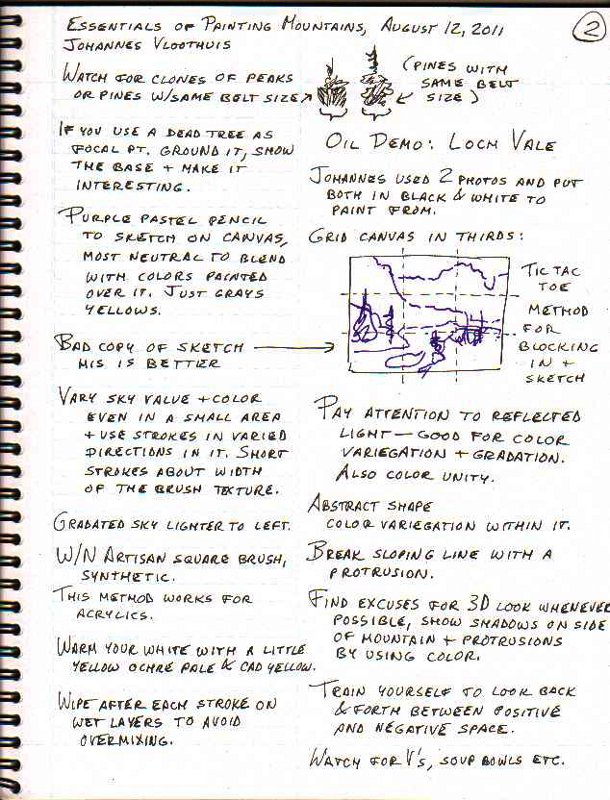 Essentials of Painting Mountains, August 12, 2011
Johannes Vloothuis
2
Watch for clones of peaks
or pines w/same belt size →
(Pines with
same belt
size)
If you use a dead tree as
focal pt. ground it, show
the base + make it
interesting.
Purple pastel pencil
to sketch on canvas,
most neutral to blend
with colors painted
over it. Just grays
yellows.
Bad copy of sketch
his is better
Vary sky value + color
even in a small area
+ use strokes in varied
directions in it. Short
strokes about width
of the brush texture.
Gradated sky lighter to left.
W/N Artisan square brush,
synthetic.
This method works for
acrylics.
Warm your white with a little
yellow ochre pale & cad yellow.
Wipe after each stroke on
wet layers to avoid
overmixing.
Oil Demo: Loch Vale
Johannes used 2 photos and put
both in black & white to
paint from.
Grid canvas in thirds:
Tic tac
toe
method
for
blocking
in +
sketch
Pay attention to reflected
light — good for color
variegation + gradation.
Also color unity.
Abstract shape
color variegation within it.
Break sloping line with a
protrusion.
Find excuses for 3D look whenever
possible, show shadows on side
of mountain + protrusions
by using color.
Train yourself to look back
& forth between positive
and negative space.
Watch for V's, soup bowls etc.